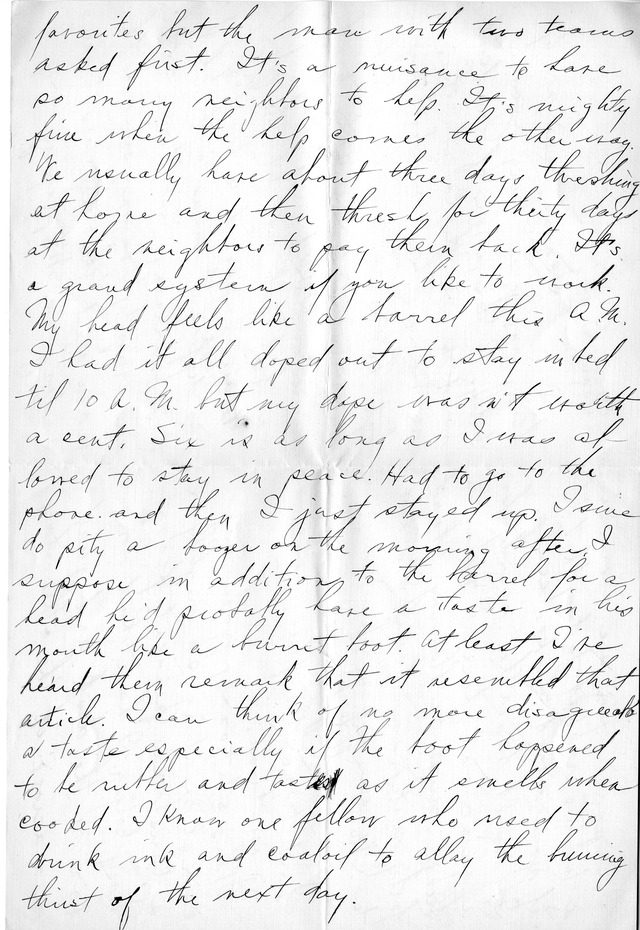 favorites but the man with two teams
asked first. It's a nuisance to have
so many neighbors to help. It's mighty
fine when the help comes the other way.
We usually have about three days threshing
at home and then thresh for thirty days
at the neighbors to pay them back. It's
a grand system if you like to work.
My head feels like a barrel this A.M.
I had it all doped out to stay in bed
til 10 A.M. but my dope was n't worth
a cent. Six is as long as I was al-
lowed to stay in peace. Had to go to the
phone. and then I just stayed up. I sure
do pity a boozer on the morning after. I
suppose in addition to the barrel for a
head he'd probally have a taste in his
mouth like a burnt boot. At least I've
heard them remark that it resembled that
article. I can think of no more disagreeable
a taste especially if the boot happened
to be rubber and tastes as it smells when
cooked. I know one fellow who used to
drink ink and coaloil to allay the burning
thirst of the next day.